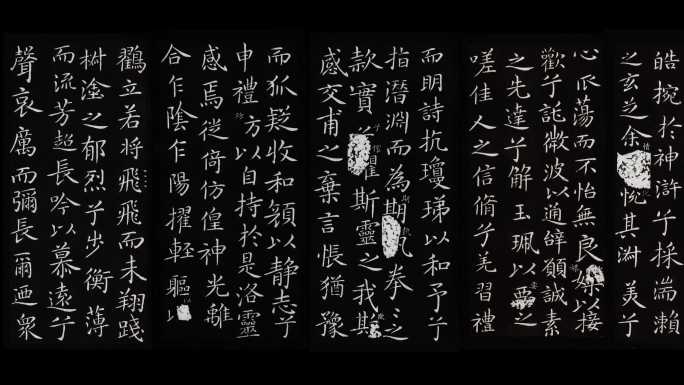 皓捥於神滸兮採湍瀨
之玄芝余悅其淑美兮
心爪蕩而不怡無良以接
歡兮託微波以通辝願誠素
之先達兮解玉珮以要之
嗟佳人之信脩兮羌習禮
而明詩抗瓊珶以和予兮
指潛淵而為期拳〻之
款實懼斯靈之我欺
感交甫之棄言悵猶豫
而狐疑收和顏以静志兮
申禮方以自持於是洛靈
感焉徙倚仿偟神光離
合乍陰乍陽擢輕軀以
鸛立若將飛飛而未翔踐
椒塗之郁烈兮步衡薄
而流芳超長吟以慕遠兮
聲哀厲而彌長爾迺衆